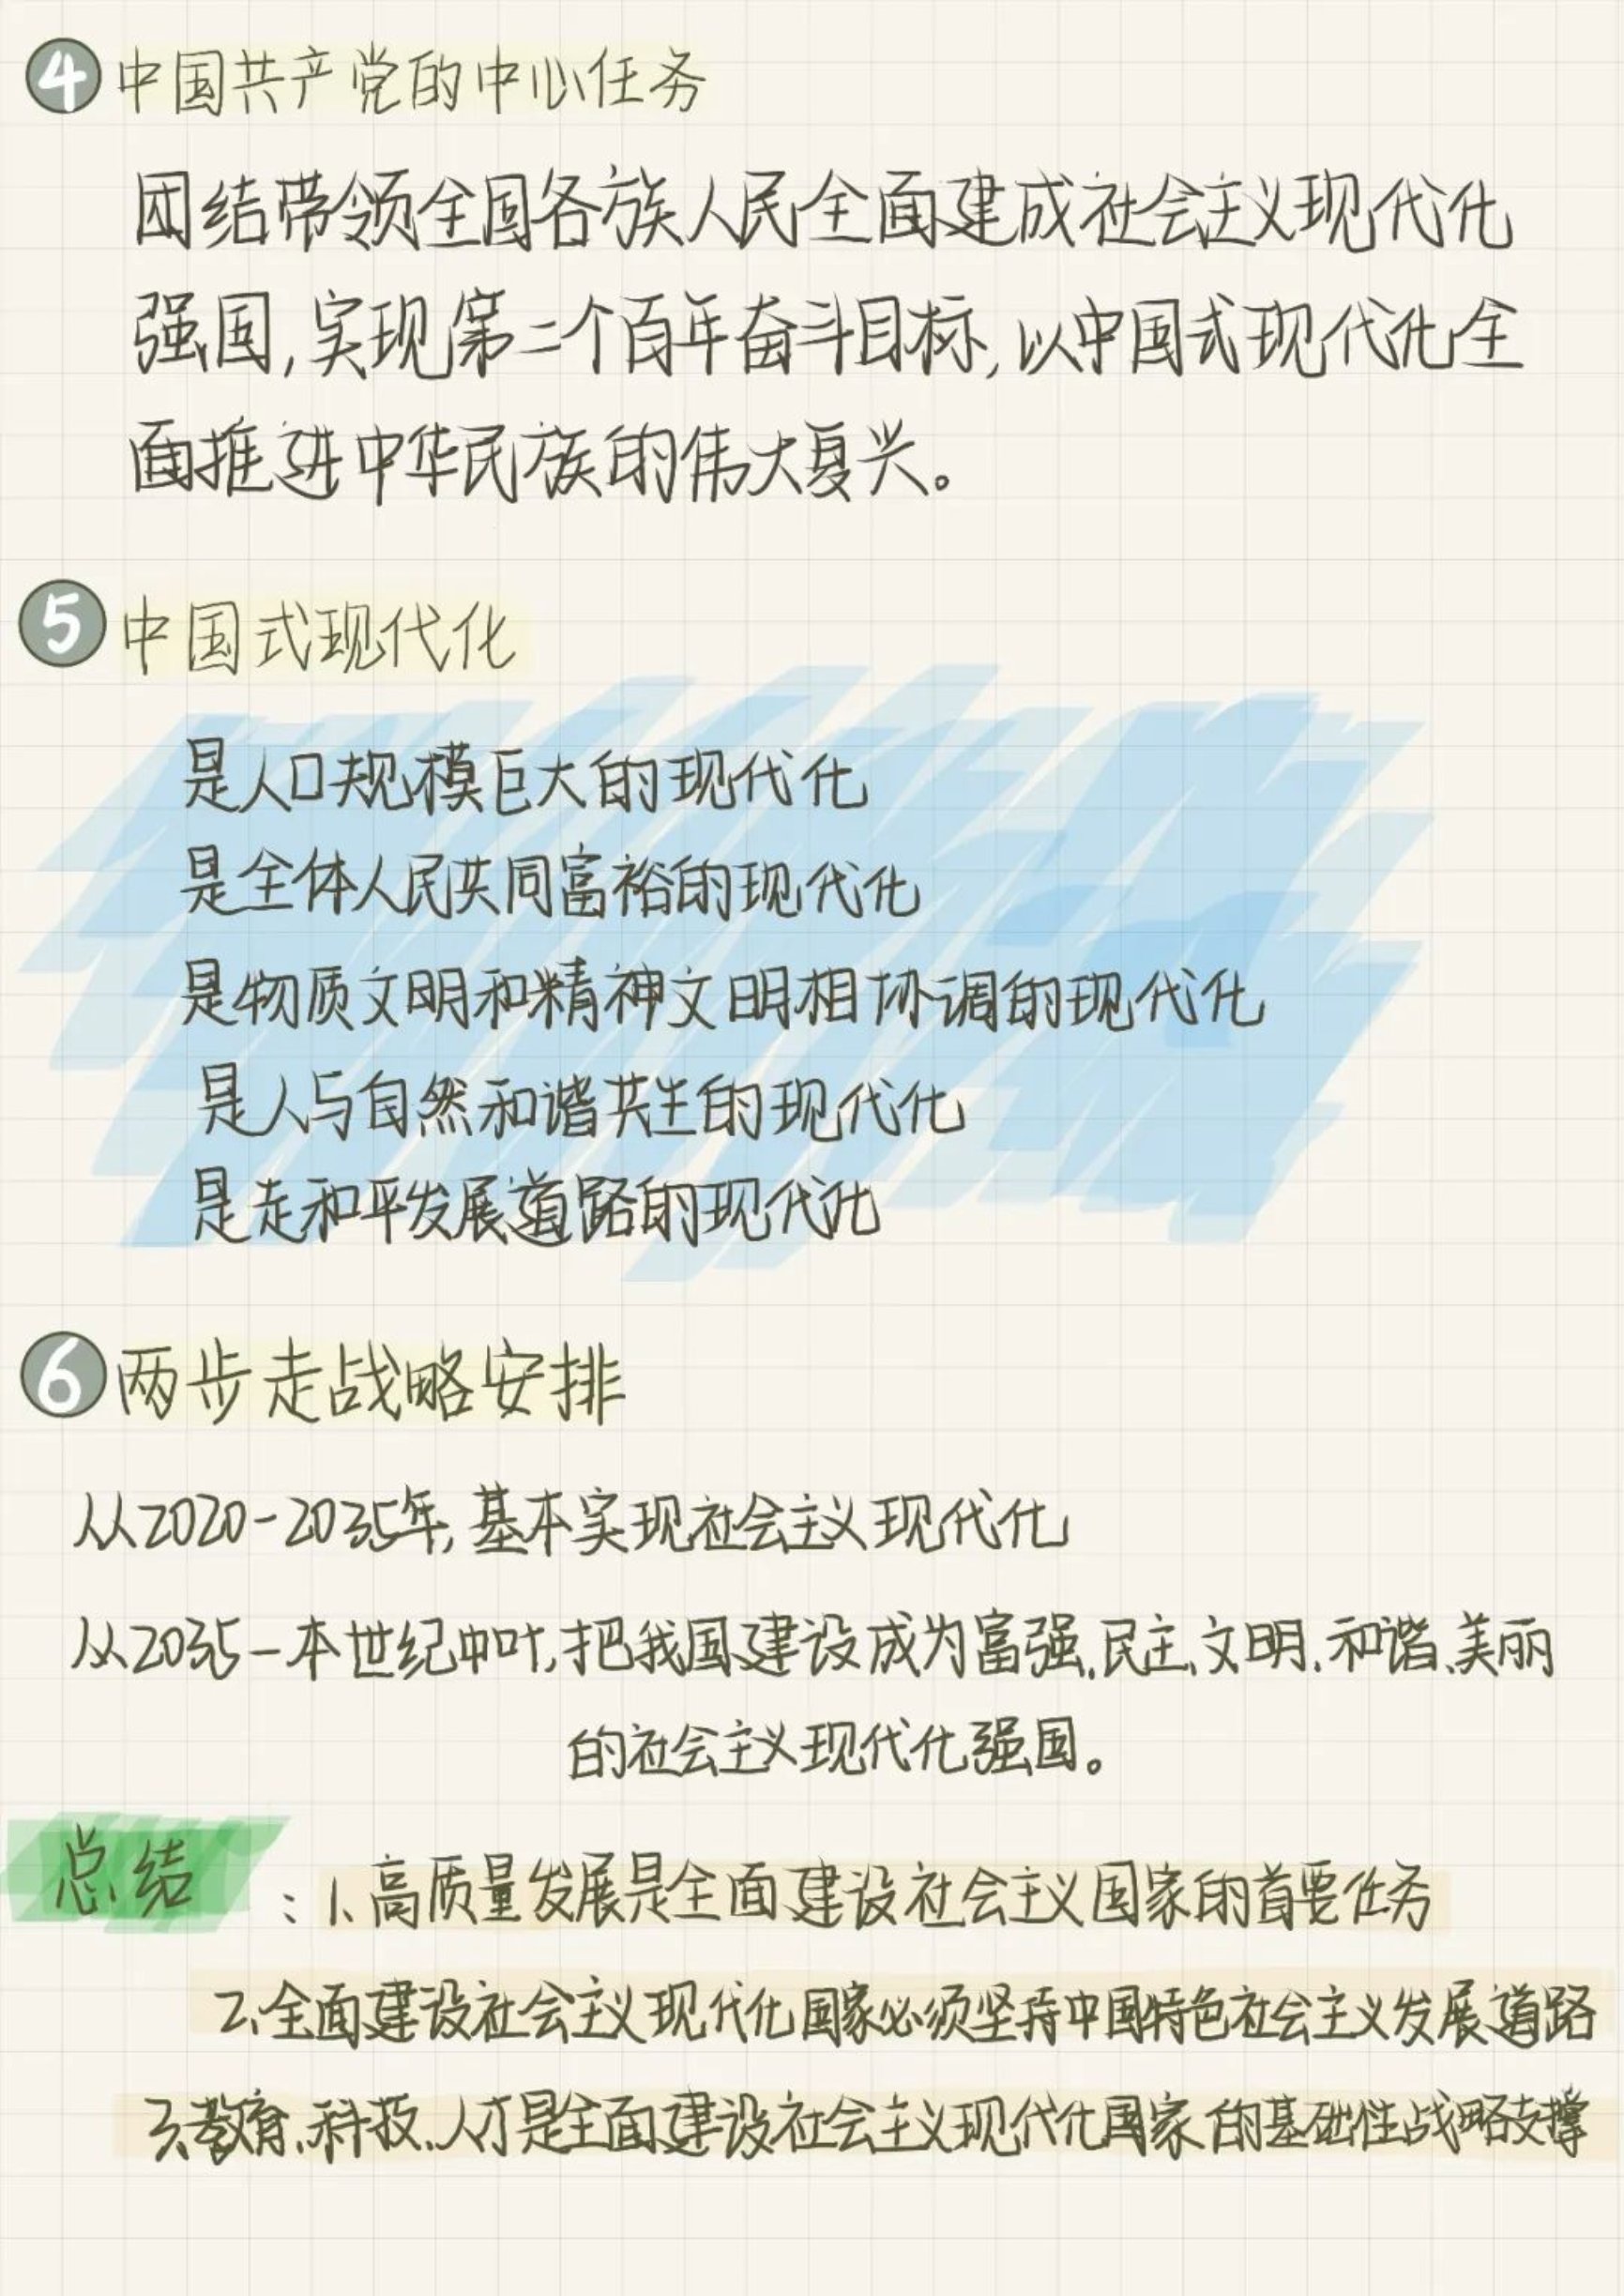 4 中国共产党的中心任务
团结带领全国各族人民全面建成社会主义现代化
强国,实现第二个百年奋斗目标,以中国式现代化全
面推进中华民族的伟大复兴。
5 中国式现代化
是人口规模巨大的现代化
是全体人民共同富裕的现代化
是物质文明和精神文明相协调的现代化
是人与自然和谐共生的现代化
是走和平发展道路的现代化
6 两步走战略安排
从2020-2035年,基本实现社会主义现代化
从2035-本世纪中叶,把我国建设成为富强、民主、文明、和谐、美丽
的社会主义现代化强国。
总结:1、高质量发展是全面建设社会主义国家的首要任务
2、全面建设社会主义现代化国家必须坚持中国特色社会主义发展道路
3、教育、科技、人才是全面建设社会主义现代化国家的基础性战略支撑